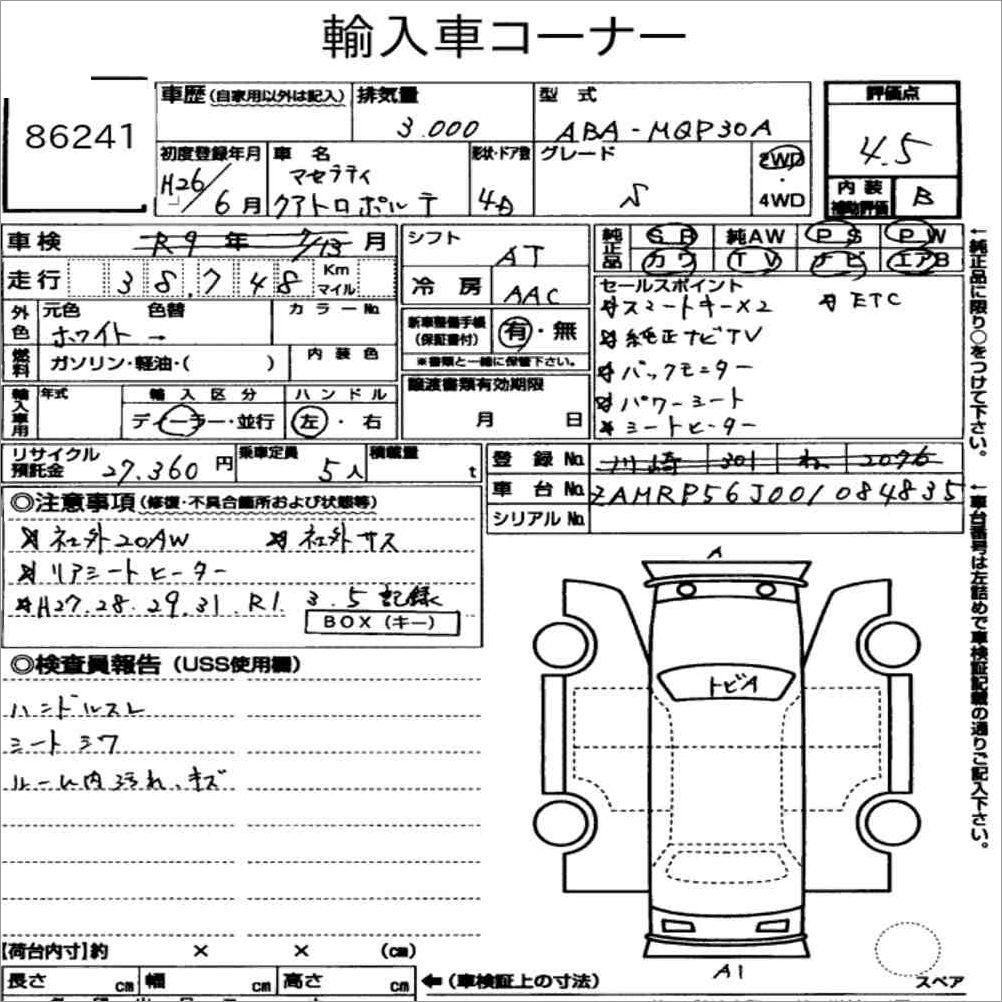 輸入車コーナー
86241
車歴(自家用以外は記入) 排気量 型式 評価点
3.000 ABA-MQP30A 4.5
初度登録年月 車名 形状・ドア数 グレード 2WD・4WD
H26/6月 マセラティ クアトロポルテ 4D S
内装補助評価 B
車検 R9年 7/13月 シフト AT
純正品 SR 純AW PS PW
カワ TV ナビ エアB
走行 38.748 Km マイル
冷房 AAC
セールスポイント
☆スマートキーX2 ☆ETC
☆純正ナビTV
☆バックモニター
☆パワーシート
☆シートヒーター
外色 元色 色替 カラーNo
ホワイト →
新車整備手帳(保証書付) 有・無
※書類と一緒に保管下さい。
燃料 ガソリン・軽油・( ) 内装色
譲渡書類有効期限
月 日
輸入車用 年式 輸入区分 ハンドル
ディーラー・並行 左・右
リサイクル預託金 27.360円 乗車定員 5人 積載量 t
登録No 川崎 301 ね 2076
車台No ZAMRP56J001084835
シリアルNo
←純正品に限り○をつけて下さい。
←車台番号は左詰めで車検証記載の通りご記入下さい。
◎注意事項(修復・不具合箇所および状態等)
☆社外20AW ☆社外サス
☆リアシートヒーター
☆H27.28.29.31.R1.3.5記録
BOX(キー)
◎検査員報告(USS使用欄)
ハンドルスレ
シートシワ
ルーム内汚れ、キズ
A
トビA
A1
スペア
【荷台内寸】約 × × (cm)
長さ cm 幅 cm 高さ cm ←(車検証上の寸法)